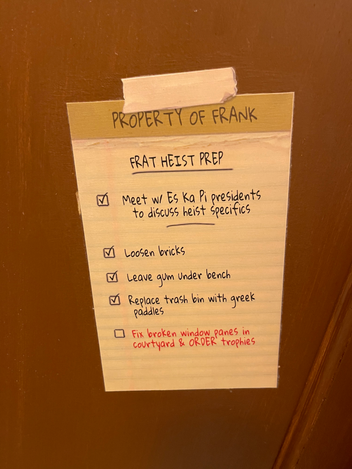 PROPERTY OF FRANK
FRAT HEIST PREP
Meet w/ Es Ka Pi presidents
to discuss heist specifics
Loosen bricks
Leave gum under bench
Replace trash bin with greek
paddles
Fix broken window panes in
courtyard & ORDER trophies